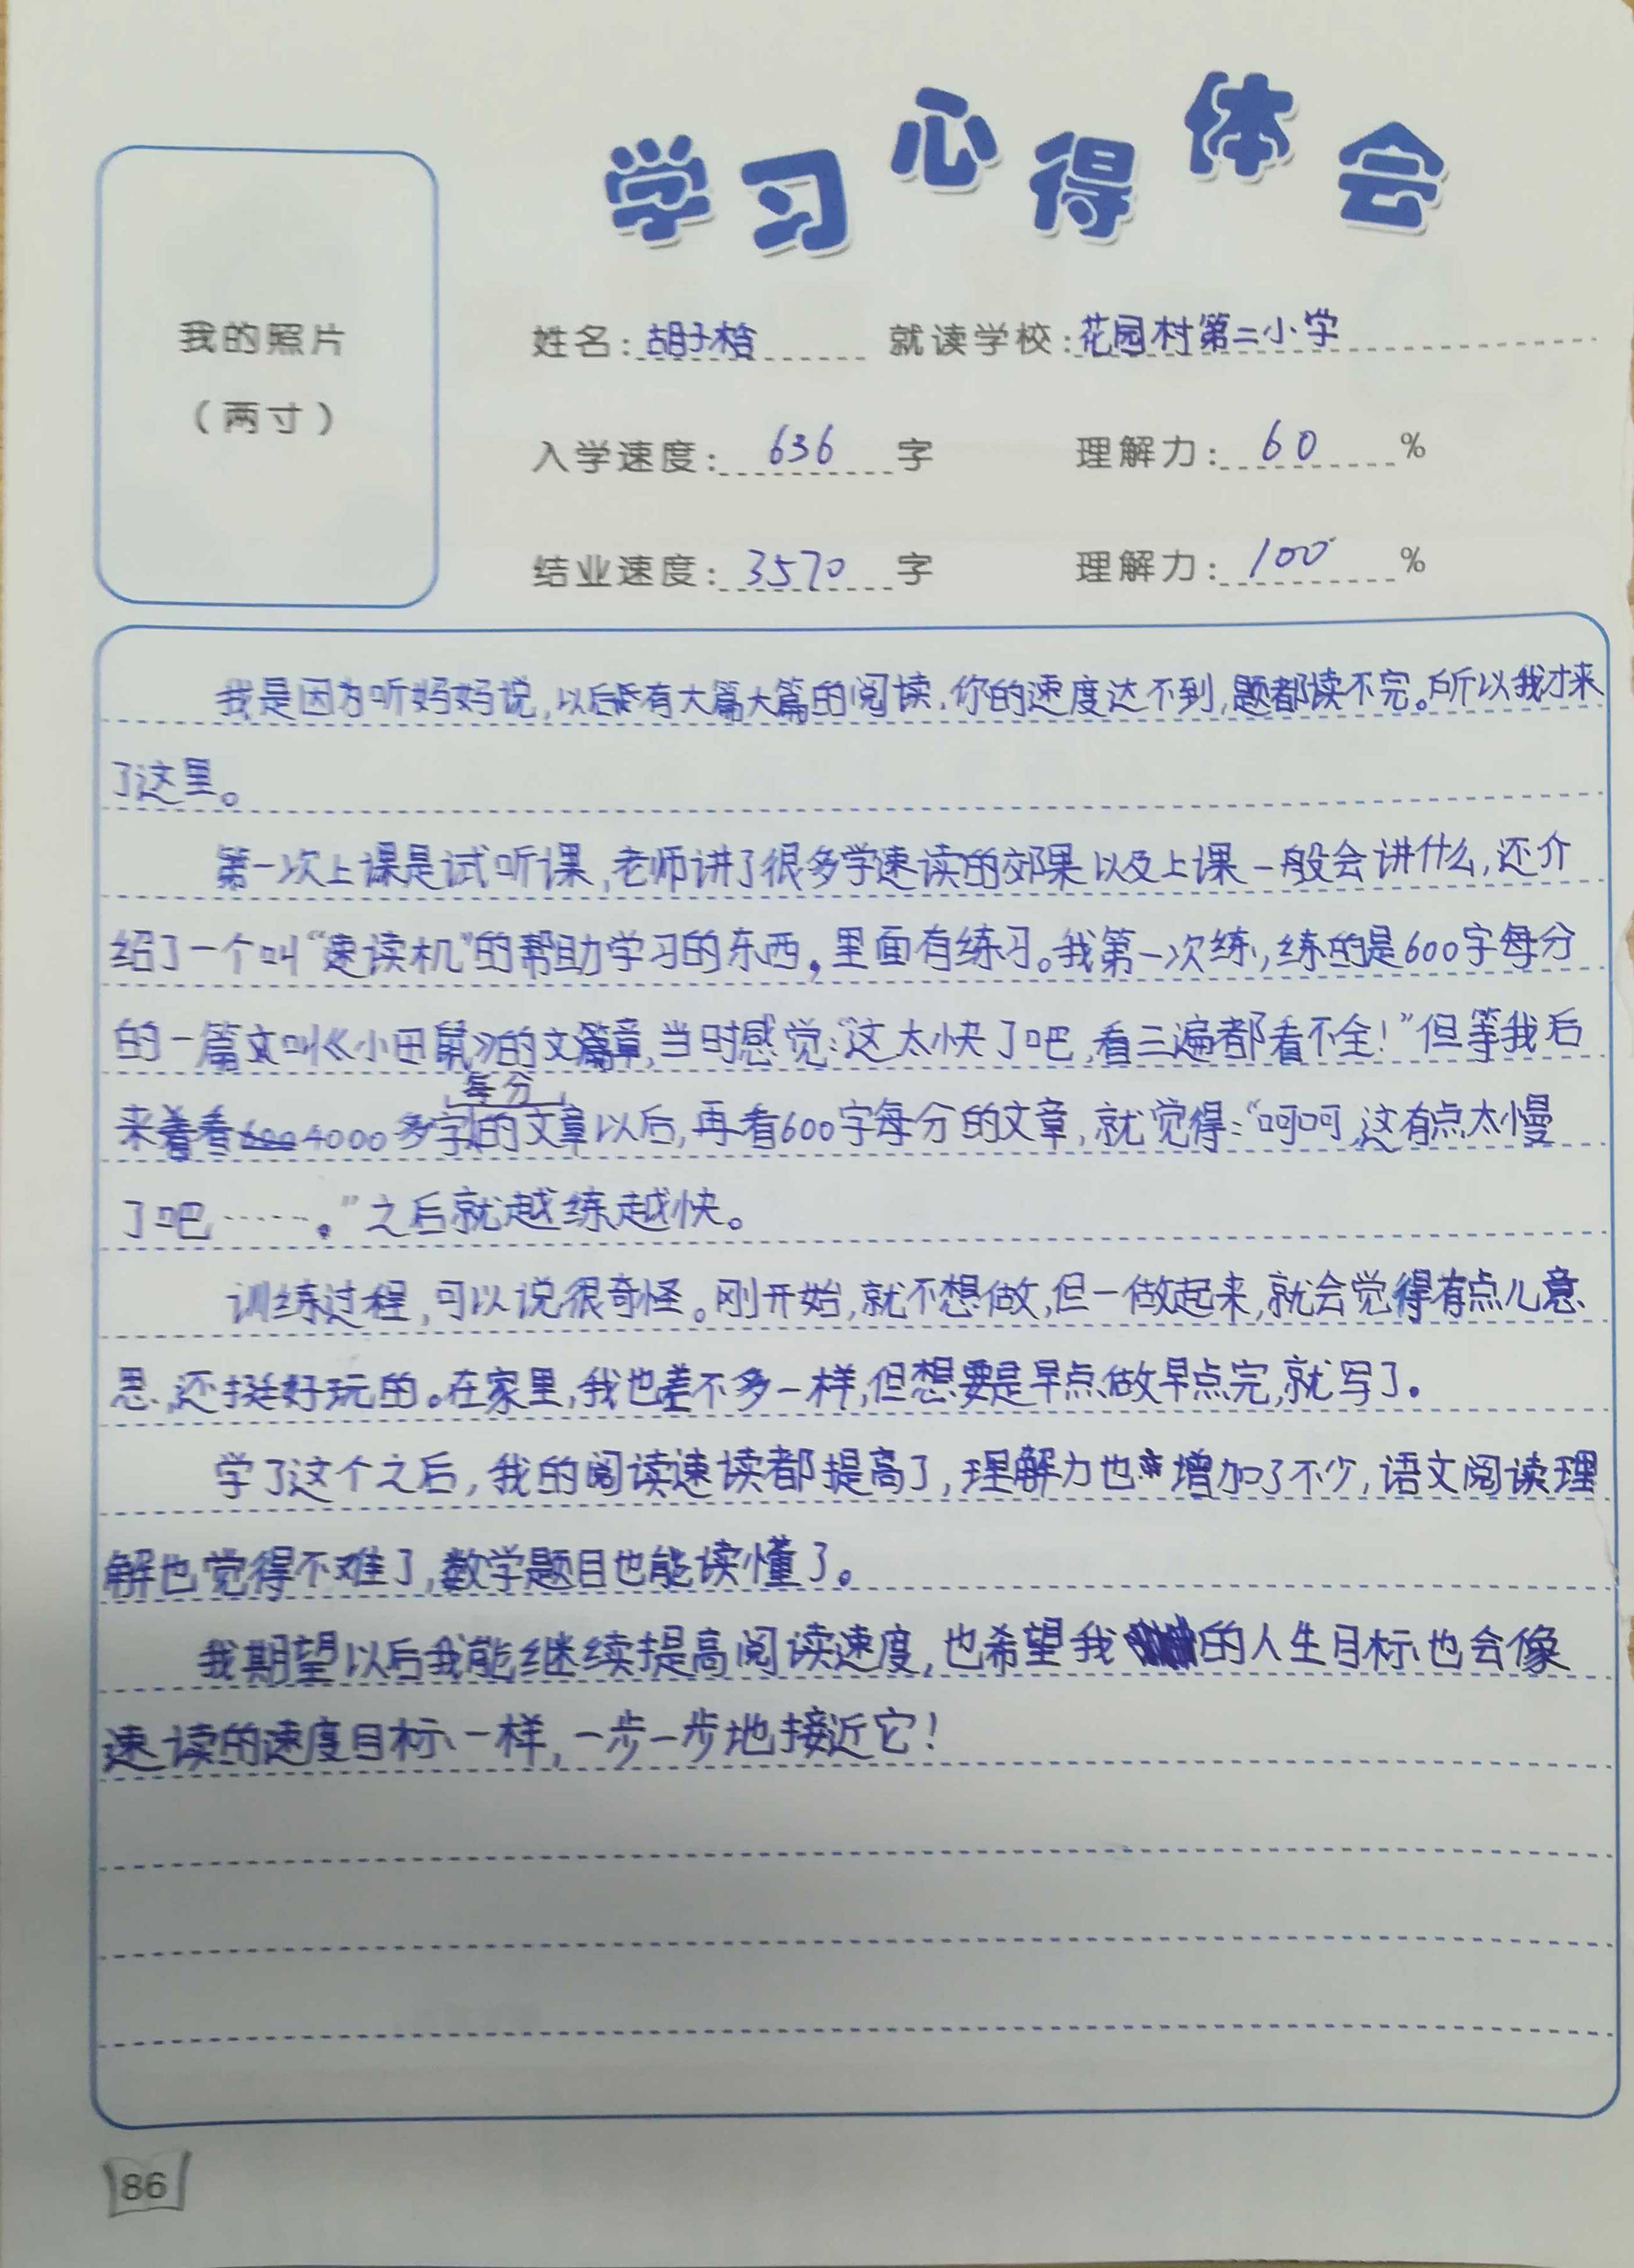 学习心得体会
我的照片
（两寸）
姓名：胡子 就读学校：花园村第二小学
入学速度：636字 理解力：60%
结业速度：3570字 理解力：100%
我是因为听妈妈说,以后有大篇大篇的阅读,你的速度达不到,题都读不完。所以我才来
了这里。
第一次上课是试听课,老师讲了很多学速读的郊果以及上课一般会讲什么,还介
绍了一个叫“速读机”的帮助学习的东西,里面有练习。我第一次练,练的是600字每分
的一篇文叫《小田鼠》的文章,当时感觉:“这太快了吧,看三遍都看不全!”但等我后
来看4000多字每分的文章以后,再看600字每分的文章,就觉得:“呵呵,这有点太慢
了吧……。”之后就越练越快。
训练过程,可以说很奇怪。刚开始,就不想做,但一做起来,就会觉得有点儿意
思,还挺好玩的。在家里,我也差不多一样,但想要是早点做早点完,就写了。
学了这个之后,我的阅读速读都提高了,理解力也增加了不少,语文阅读理
解也觉得不难了,数学题目也能读懂了。
我期望以后我能继续提高阅读速度,也希望我的人生目标也会像
速读的速度目标一样,一步一步地接近它!
86